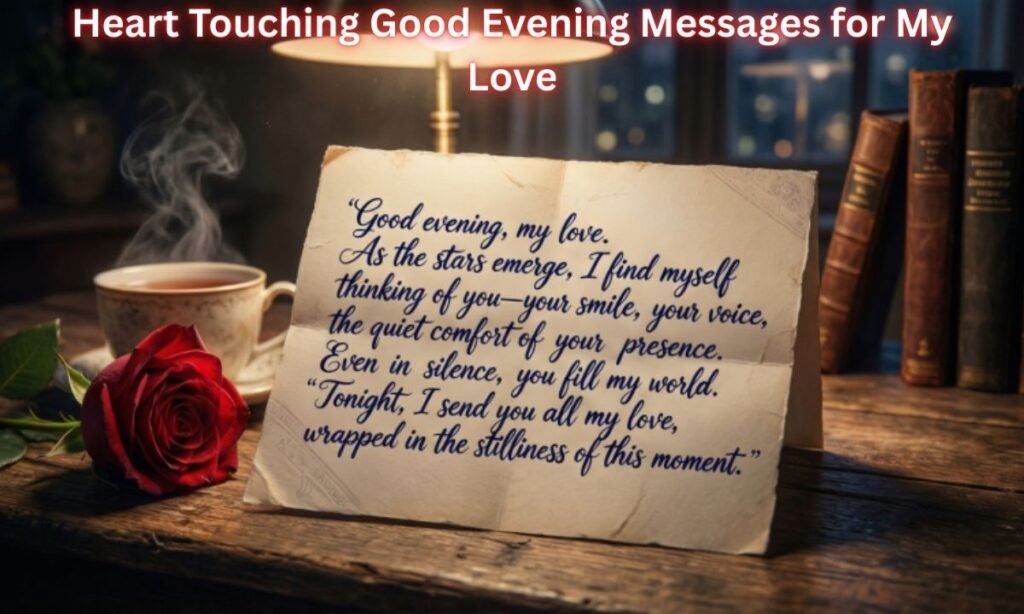 Heart Touching Good Evening Messages for My
Love
“Good evening, my love.
As the stars emerge, I find myself
thinking of you—your smile, your voice,
the quiet comfort of your presence.
Even in silence, you fill my world.
“Tonight, I send you all my love,
wrapped in the stilliness of this moment.”